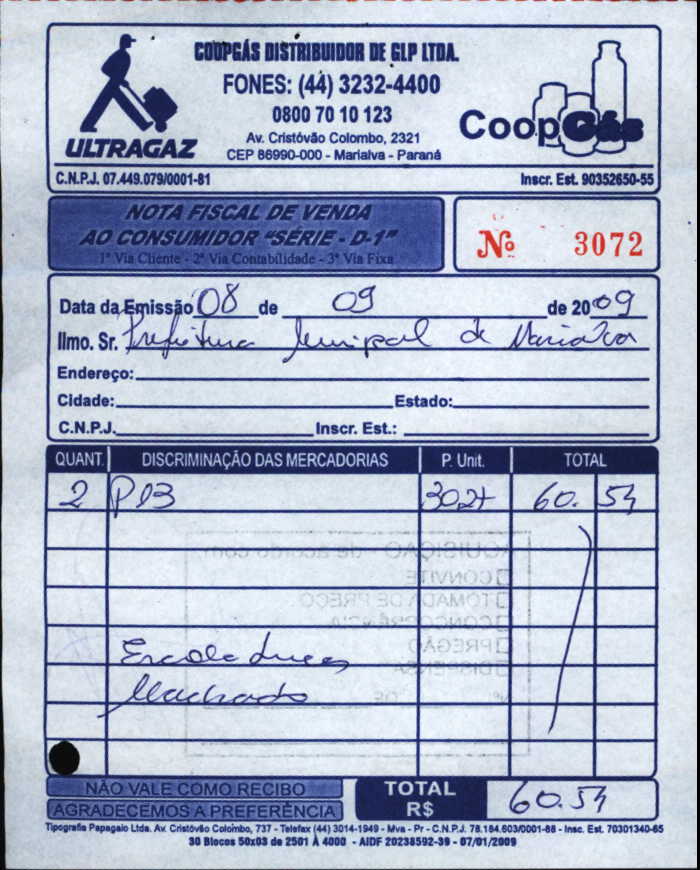 COOPGÁS DISTRIBUIDOR DE GLP LTDA.
FONES: (44) 3232-4400
0800 70 10 123
Av. Cristóvão Colombo, 2321
CEP 86990-000 - Marialva - Paraná
ULTRAGAZ
CoopGás
C.N.P.J. 07.449.079/0001-81
Inscr. Est. 90352650-55
NOTA FISCAL DE VENDA
AO CONSUMIDOR "SÉRIE - D-1"
1ª Via Cliente - 2ª Via Contabilidade - 3ª Via Fixa
Nº 3072
Data da Emissão 08 de 09 de 2009
Ilmo. Sr. Prefeitura Municipal de Marialva
Endereço:
Cidade: Estado:
C.N.P.J. Inscr. Est.:
QUANT. DISCRIMINAÇÃO DAS MERCADORIAS P. Unit. TOTAL
2 P13 30,27 60,54
AQUISIÇÃO - de acordo com:
CONVITE
TOMADA DE PREÇO
CONCORRÊNCIA
PREGÃO
DISPENSA
Nº DE
Escola Lucas
Machado
NÃO VALE COMO RECIBO
AGRADECEMOS A PREFERÊNCIA
TOTAL
R$ 60.54
Tipografia Papagaio Ltda. Av. Cristóvão Colombo, 737 - Telefax (44) 3014-1949 - Mva - Pr - C.N.P.J. 78.184.603/0001-88 - Insc. Est. 70301340-65
30 Blocos 50x03 de 2501 À 4000 - AIDF 20238592-39 - 07/01/2009